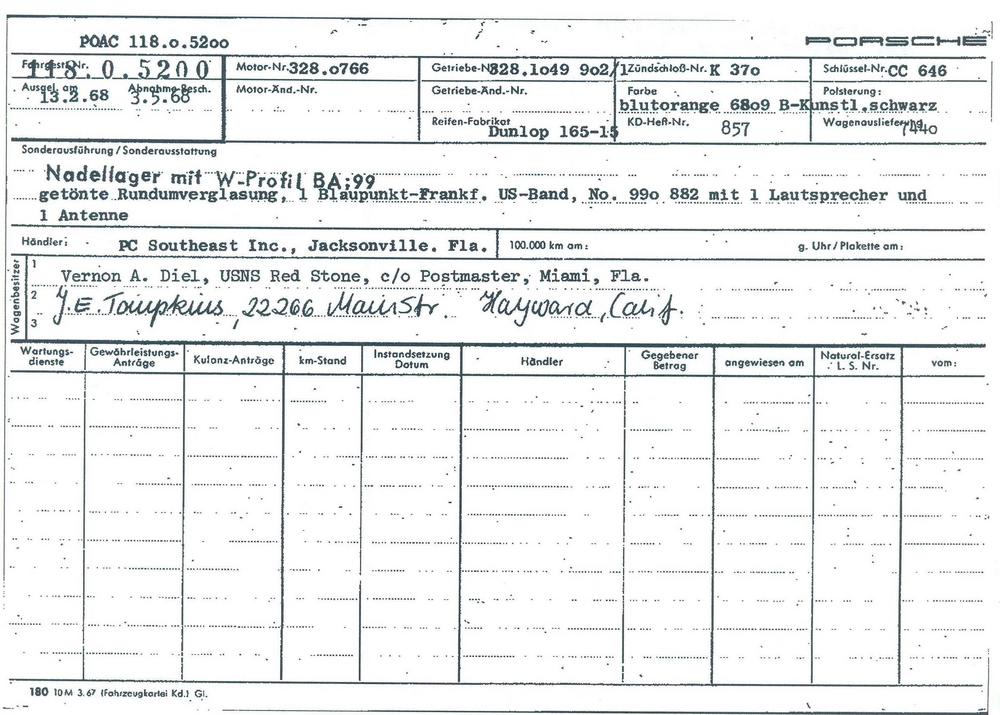 POAC 118.o.52oo
PORSCHE
Fahrgest.-Nr. 118.0.5200 Motor-Nr. 328.o766 Getriebe-Nr. 328.1o49 9o2/1 Zündschloß-Nr. K 37o Schlüssel-Nr. CC 646
Ausgel. am 13.2.68 Abnahme-Besch. 3.5.68 Motor-Änd.-Nr. Getriebe-Änd.-Nr. Farbe Polsterung:
blutorange 68o9 B-Kunstl.schwarz
Reifen-Fabrikat Dunlop 165-15 KD-Heft-Nr. 857 Wagenauslieferung 7440
Sonderausführung / Sonderausstattung
Nadellager mit W-Profil BA;99
getönte Rundumverglasung, 1 Blaupunkt-Frankf. US-Band, No. 99o 882 mit 1 Lautsprecher und
1 Antenne
Händler: PC Southeast Inc., Jacksonville. Fla. 100.000 km am: g. Uhr / Plakette am:
Wagenbesitzer
1 Vernon A. Diel, USNS Red Stone, c/o Postmaster, Miami, Fla.
2 J.E. Tompkins, 22266 Main Str. Hayward, Calif.
3
Wartungs-dienste Gewährleistungs-Anträge Kulanz-Anträge km-Stand Instandsetzung Datum Händler Gegebener Betrag angewiesen am Natural-Ersatz L. S. Nr. vom:
180 10 M 3.67 (Fahrzeugkartei Kd.) Gl.